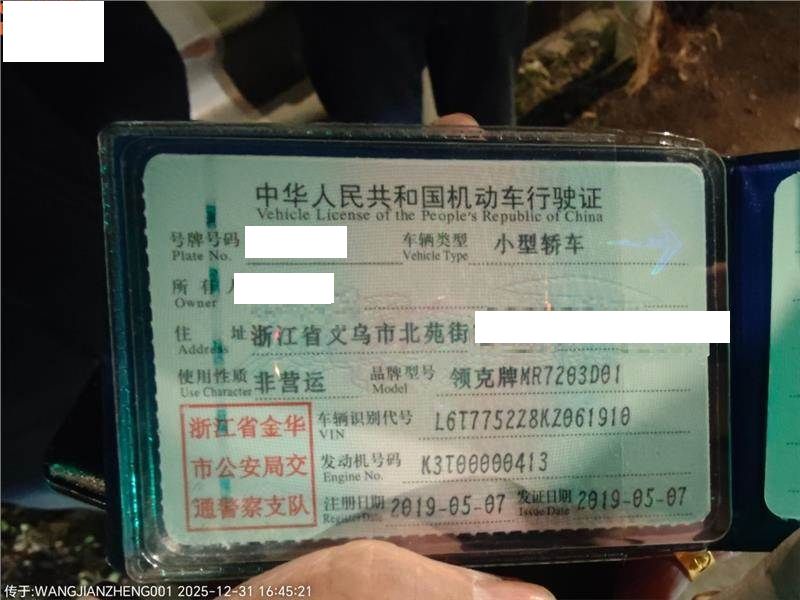 中华人民共和国机动车行驶证
Vehicle License of the People's Republic of China
号牌号码 车辆类型 小型轿车
Plate No. Vehicle Type
所有人
Owner
住址 浙江省义乌市北苑街
Address
使用性质 非营运 品牌型号 领克牌MR7203D01
Use Character Model
浙江省金华 车辆识别代号 L6T7752Z8KZ061910
VIN
市公安局交 发动机号码 K3T00000413
Engine No.
通警察支队 注册日期 2019-05-07 发证日期 2019-05-07
Register Date Issue Date
传于:WANGJIANZHENG001 2025-12-31 16:45:21